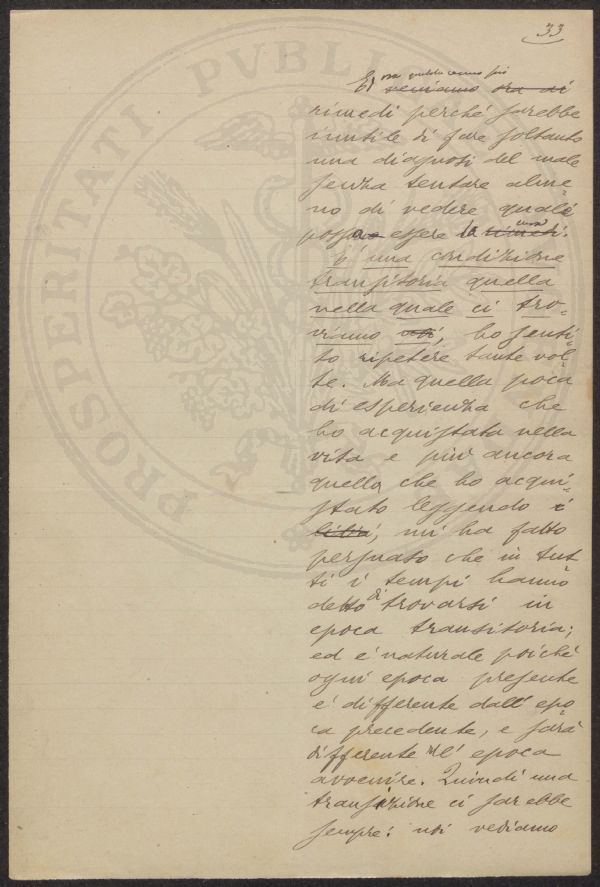 33
Ed ora qualche cenno sui
veniamo ora ai
rimedi perché sarebbe
inutile di fare soltanto
una diagnosi del male
senza tentare alme-
no di vedere quale
possa essere la cura rimedi.
È una condizione
transitoria quella
nella quale ci tro-
viamo noi, ho senti-
to ripetere tante vol-
te. Ma quella poca
di esperienza che
ho acquistata nella
vita e più ancora
quella che ho acqui-
stato leggendo i
libri, mi ha fatto
persuaso che in tut-
ti i tempi hanno
detto di trovarsi in
epoca transitoria;
ed è naturale poiché
ogni epoca presente
è differente dall'epo-
ca precedente, e sarà
differente l'epoca
avvenire. Quindi una
transizione ci sarebbe
sempre: noi vediamo
PROSPERITATI PVBLICAE